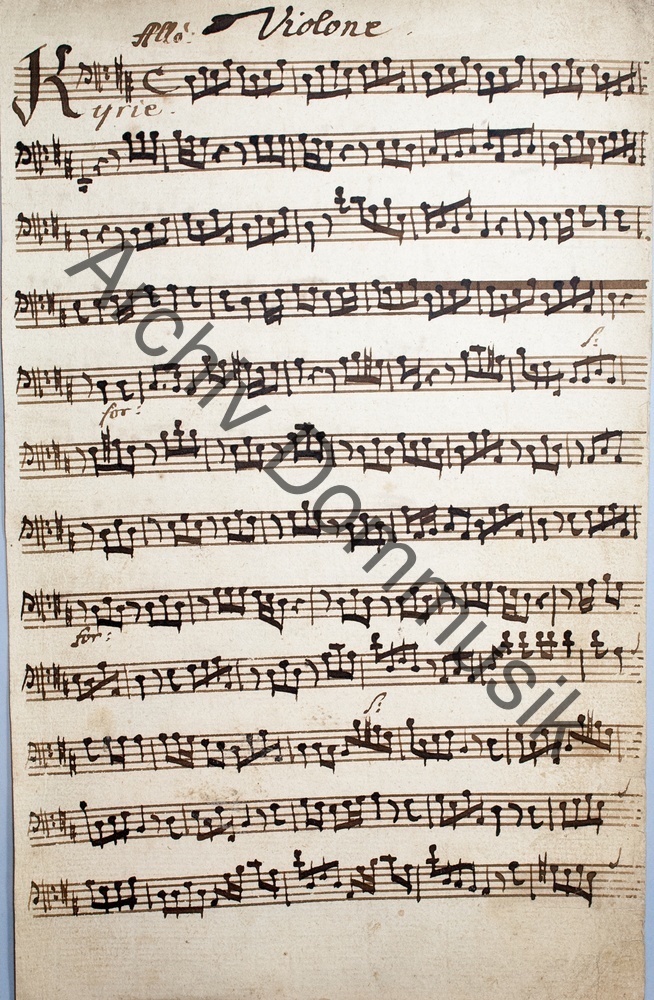 Allo: Violone
Kyrie.
p:
for:
for:
p:
Archiv Dommusik